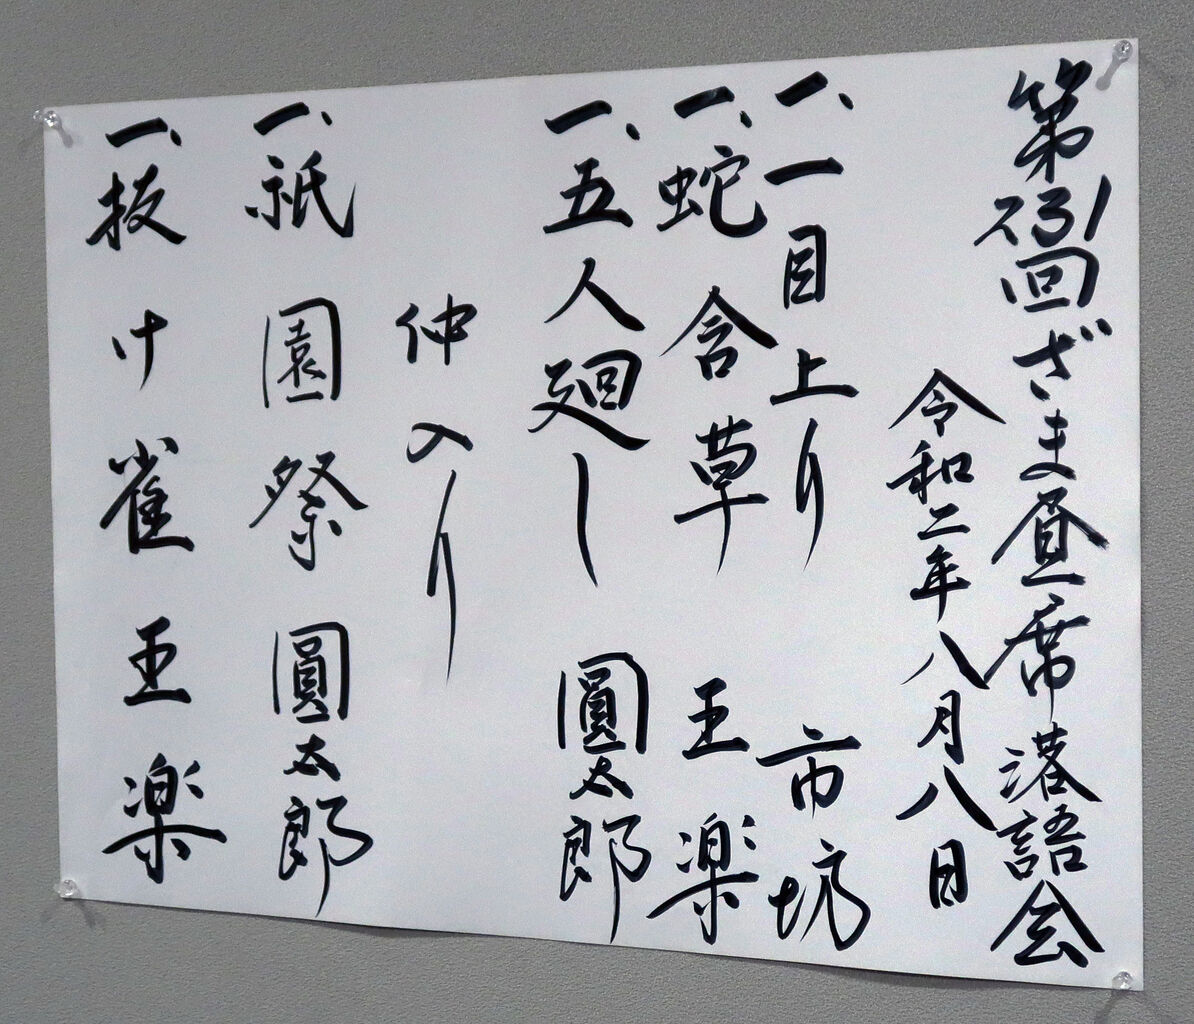 第231回ざま昼席落語会
令和二年八月八日
一、一目上り 市坊
一、蛇含草 王楽
一、五人廻し 圓太郎
仲入り
一、祇園祭 圓太郎
一、抜け雀 王楽